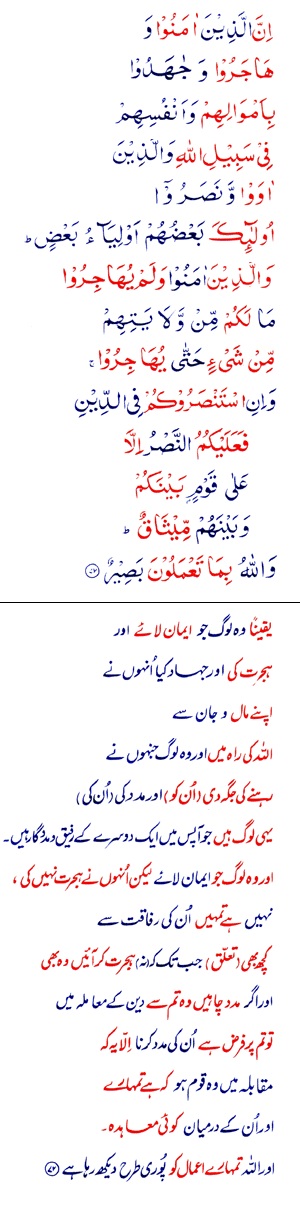 اِنَّ الَّذِيْنَ اٰمَنُوْا وَ
هَاجَرُوْا وَ جٰهَدُوْا
بِاَمْوَالِهِمْ وَاَنْفُسِهِمْ
فِىْ سَبِيْلِ اللّٰهِ وَالَّذِيْنَ
اٰوَوْا وَّ نَصَرُوْۤا
اُولٰٓئِكَ بَعْضُهُمْ اَوْلِيَآءُ بَعْضٍ ؕ
وَالَّذِيْنَ اٰمَنُوْا وَلَمْ يُهَاجِرُوْا
مَا لَكُمْ مِّنْ وَّلَا يَتِهِمْ
مِّنْ شَىْءٍ حَتّٰى يُهَاجِرُوْا ۚ
وَاِنِ اسْتَنْصَرُوْكُمْ فِى الدِّيْنِ
فَعَلَيْكُمُ النَّصْرُ اِلَّا
عَلٰى قَوْمٍۢ بَيْنَكُمْ
وَبَيْنَهُمْ مِّيْثَاقٌ ؕ
وَاللّٰهُ بِمَا تَعْمَلُوْنَ بَصِيْرٌ ﴿۷۲﴾
یقیناً وہ لوگ جو ایمان لائے اور
ہجرت کی اور جہاد کیا اُنہوں نے
اپنے مال و جان سے
اللہ کی راہ میں اور وہ لوگ جنہوں نے
رہنے کی جگہ دی (اُن کو) اور مدد کی (اُن کی)
یہی لوگ ہیں جو آپس میں ایک دوسرے کے رفیق و مددگار ہیں۔
اور وہ لوگ جو ایمان لائے لیکن اُنہوں نے ہجرت نہیں کی،
نہیں ہے تمہیں اُن کی رفاقت سے
کچھ بھی (تعلق) جب تک کہ (نہ) ہجرت کر آئیں وہ بھی
اور اگر مدد چاہیں وہ تم سے دین کے معاملہ میں
تو تم پر فرض ہے اُن کی مدد کرنا اِلّا یہ کہ
مقابلہ میں وہ قوم ہو کہ ہے تمہارے
اور اُن کے درمیان کوئی معاہدہ۔
اور اللہ تمہارے اعمال کو پُوری طرح دیکھ رہا ہے ﴿۷۲﴾